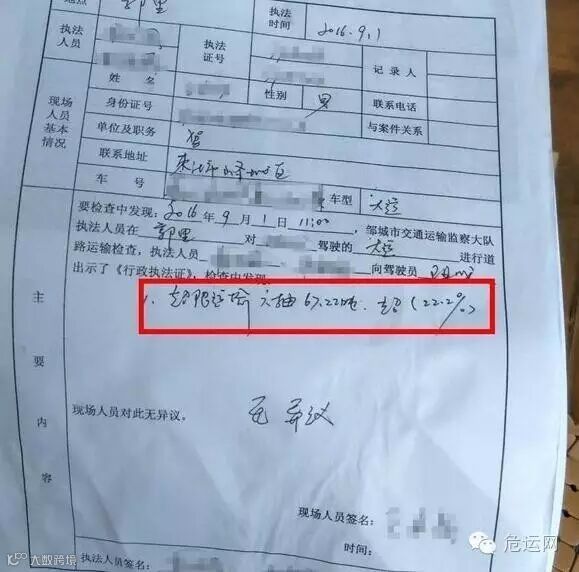 地点 郭里 执法时间 2016.9.1
执法人员 执法证号 记录人
现场人员基本情况 姓名 性别 男 联系电话
身份证号 与案件关系
单位及职务
联系地址
车号 车型 大运
主要内容
要检查中发现:2016年9月1日11:00 邹城市交通运输监察大队
执法人员在 郭里 对 驾驶的 大运 进行道
路运输检查,执法人员 向驾驶员
出示了《行政执法证》,检查中发现
1、超限运输 六轴67.22吨、超(22.2%)
现场人员对此无异议。
无异议
现场人员签名:
时间:
执法人员签名:
危运网
10100 大数跨境